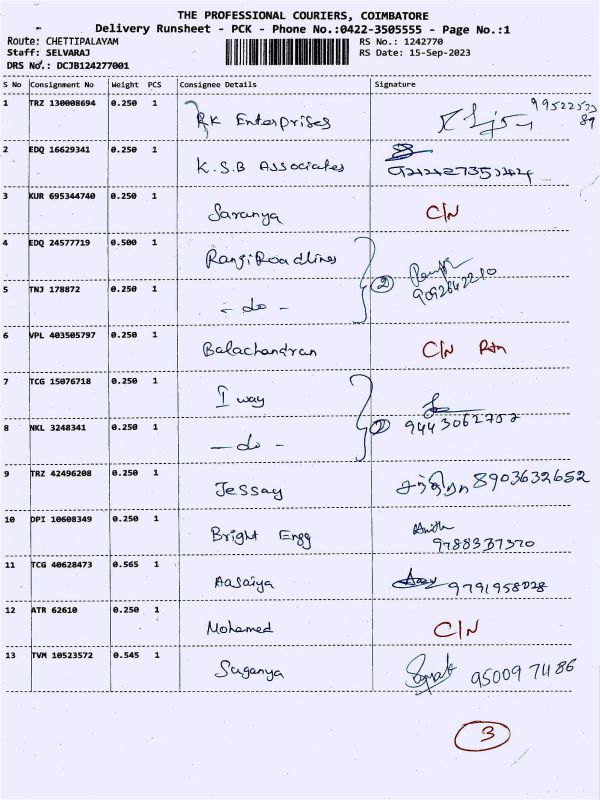 THE PROFESSIONAL COURIERS, COIMBATORE
Delivery Runsheet - PCK - Phone No.:0422-3505555 - Page No.:1
Route: CHETTIPALAYAM RS No.: 1242770
Staff: SELVARAJ RS Date: 15-Sep-2023
DRS No.: DCJB124277001
S No Consignment No Weight PCS Consignee Details Signature
1 TRZ 130008694 0.250 1 RK Enterprises
2 EDQ 16629341 0.250 1 K.S.B Associates
3 KUR 695344740 0.250 1 Saranya C/N
4 EDQ 24577719 0.500 1 Rangi Roadlines
5 TNJ 178872 0.250 1 - do - 2 9092642210
6 VPL 403505797 0.250 1 Balachandran C/N Rtn
7 TCG 15076718 0.250 1 I way
8 NKL 3248341 0.250 1 - do - 2 9443062752
9 TRZ 42496208 0.250 1 Jessay 8903632652
10 DPI 10608349 0.250 1 Bright Engg 9788337370
11 TCG 40628473 0.565 1 Aasaiya 9791958028
12 ATR 62610 0.250 1 Mohamed C/N
13 TVM 10523572 0.545 1 Suganya 95009 71186
3